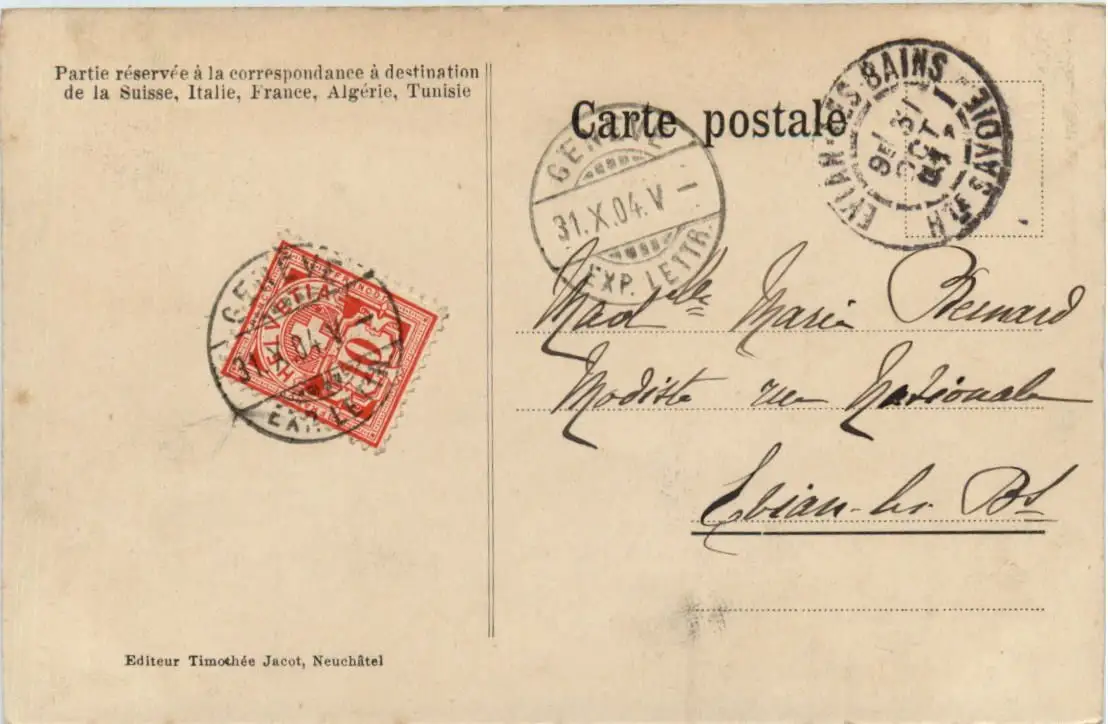 Partie réservée à la correspondance à destination
de la Suisse, Italie, France, Algérie, Tunisie
Carte postale
GENÈVE
31.X.04.V –
EXP. LETTR.
EVIAN-LES-BAINS
31
OCT
04
HTE SAVOIE
HELVETIA
FRANCO
10
GENÈVE
31.X.04.V –
EXP. LETTR.
Madelle Marie Bernard
Modiste rue Nationale
Evian-les Bs
Editeur Timothée Jacot, Neuchâtel